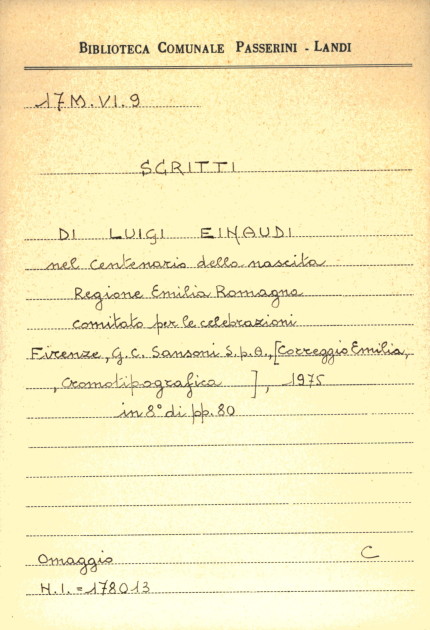 BIBLIOTECA COMUNALE PASSERINI - LANDI
17 M. VI. 9
SCRITTI
DI LUIGI EINAUDI
nel centenario della nascita
Regione Emilia Romagna
comitato per le celebrazioni
Firenze, G. C. Sansoni S.p.A., [Correggio Emilia,
, Cromotipografica ], 1975
in 8° di pp. 80
Omaggio C
N.I. = 178013